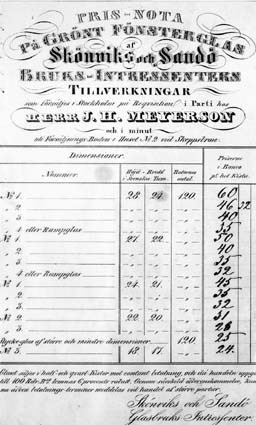 PRIS-NOTA
På GRÖNT FÖNSTERGLAS
af
Skönviks och Sandö
BRUKS-INTRESSENTERS
TILLVERKNINGAR
som försäljes i Stockholm på Requisition i Parti hos
HERR J. H. MEYERSON
och i minut
uti Försäljnings-Boden i Huset No 2 vid Skeppsbron.
Dimensioner. Priserne
Nummer. Höjd Bredd i Svenska Tum. i Banco pr helt Kista.
No 1. 28 24 120. 60
" 2. 46 32
" 3. 40
" 4 eller Rumpglas 35
No 1. 27 22 50
" 2. 40
" 3. 35
" 4 eller Rumpglas 32
No 1. 24 21 45
" 2. 35
" 3. 32
No 2. 22 20 31
" 3. 28
Stycke-glas af större och mindre dimensioner 120. 25
No 3. 18 17 24
Glaset säljes i half och qvart Kistor mot contant betalning, och då handeln uppgår
till 100 Rdr Bco lemnas 6 procents rabatt. Genom särskild öfverenskommelse,
äfven betalnings-terminer meddelas vid handel af större partier.
Skönviks och Sandö
Glasbruks Intressenter.